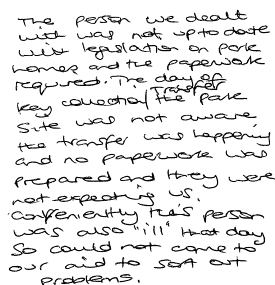 The person we dealt
with was not up to date
with legislation on park
homes and the paperwork
required. The day of
key collection/Transfer the Park
Site was not aware
the transfer was happening
and no paperwork was
prepared and they were
not expecting us.
Conveniently this person
was also "ill" that day
So could not come to
our aid to sort out
problems.